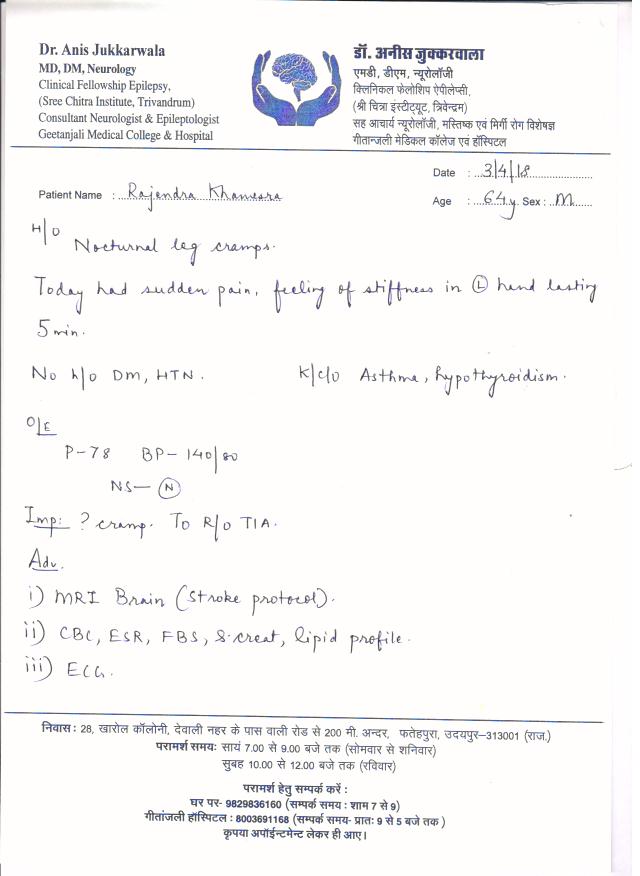 Dr. Anis Jukkarwala
MD, DM, Neurology
Clinical Fellowship Epilepsy,
(Sree Chitra Institute, Trivandrum)
Consultant Neurologist & Epileptologist
Geetanjali Medical College & Hospital
डॉ. अनीस जुक्करवाला
एमडी, डीएम, न्यूरोलॉजी
क्लिनिकल फेलोशिप ऐपीलेप्सी,
(श्री चित्रा इंस्टीट्यूट, त्रिवेन्द्रम)
सह आचार्य न्यूरोलॉजी, मस्तिष्क एवं मिर्गी रोग विशेषज्ञ
गीतान्जली मेडिकल कॉलेज एवं हॉस्पिटल
Date : 3/4/18
Patient Name : Rajendra Khamesra
Age : 64y Sex : M
H/O
Nocturnal leg cramps.
Today had sudden pain, feeling of stiffness in (L) hand lasting
5 min.
No h/o DM, HTN. K/C/O Asthma, hypothyroidism.
O/E
P-78 BP-140/80
NS- (N)
Imp: ? cramp. To R/O TIA.
Adv.
i) MRI Brain (Stroke protocol).
ii) CBC, ESR, FBS, S.creat, lipid profile.
iii) ECG.
निवास : 28, खारोल कॉलोनी, देवाली नहर के पास वाली रोड से 200 मी. अन्दर, फतेहपुरा, उदयपुर–313001 (राज.)
परामर्श समयः सायं 7.00 से 9.00 बजे तक (सोमवार से शनिवार)
सुबह 10.00 से 12.00 बजे तक (रविवार)
परामर्श हेतु सम्पर्क करें :
घर पर- 9829836160 (सम्पर्क समय : शाम 7 से 9)
गीतांजली हॉस्पिटल : 8003691168 (सम्पर्क समय- प्रातः 9 से 5 बजे तक )
कृपया अपॉईन्टमेन्ट लेकर ही आए।